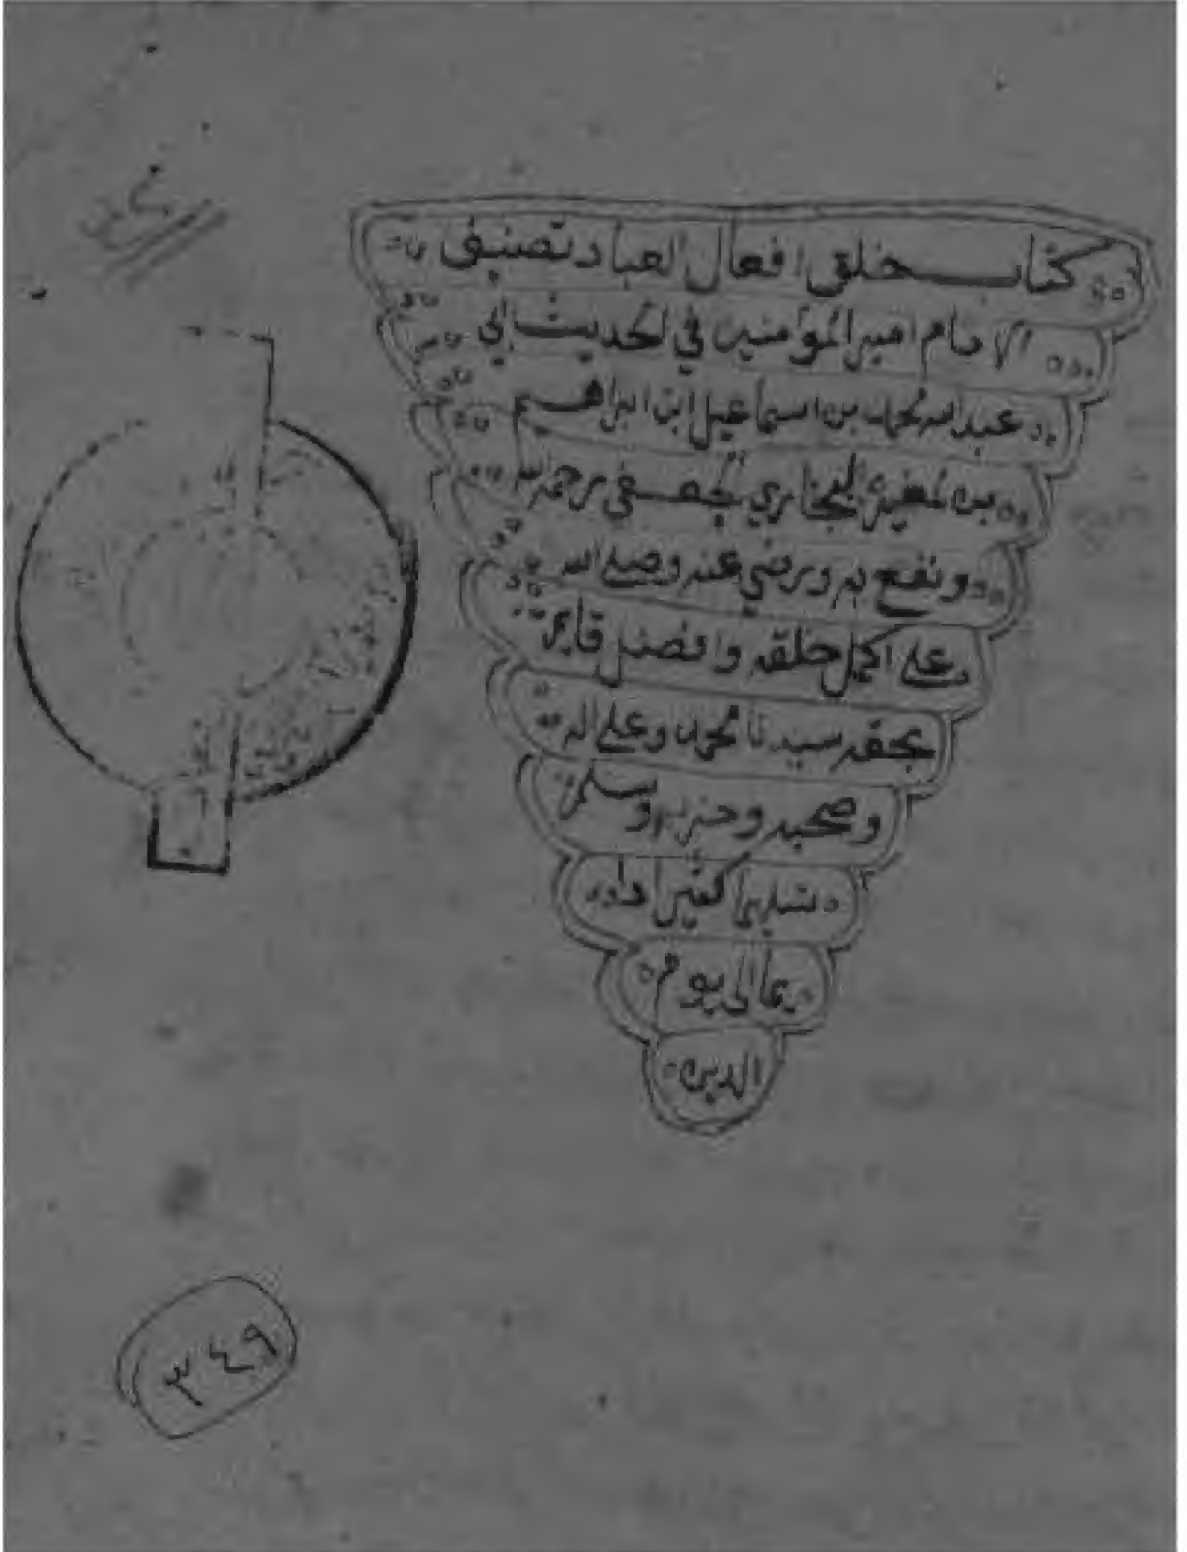 كتاب خلق افعال العباد تصنيف
الامام امير المؤمنين في الحديث ابي
عبد الله محمد بن اسماعيل ابن ابراهيم
بن المغيرة البخاري الجعفي رحمه الله
ونفع به ورضي عنه وصلى الله
على اكمل خلقه وافضل قايم
بحقه سيدنا محمد وعلى اله
وصحبه وحزبه وسلم
تسليما كثيرا دا
يما الى يوم
الدين
٣٤٩